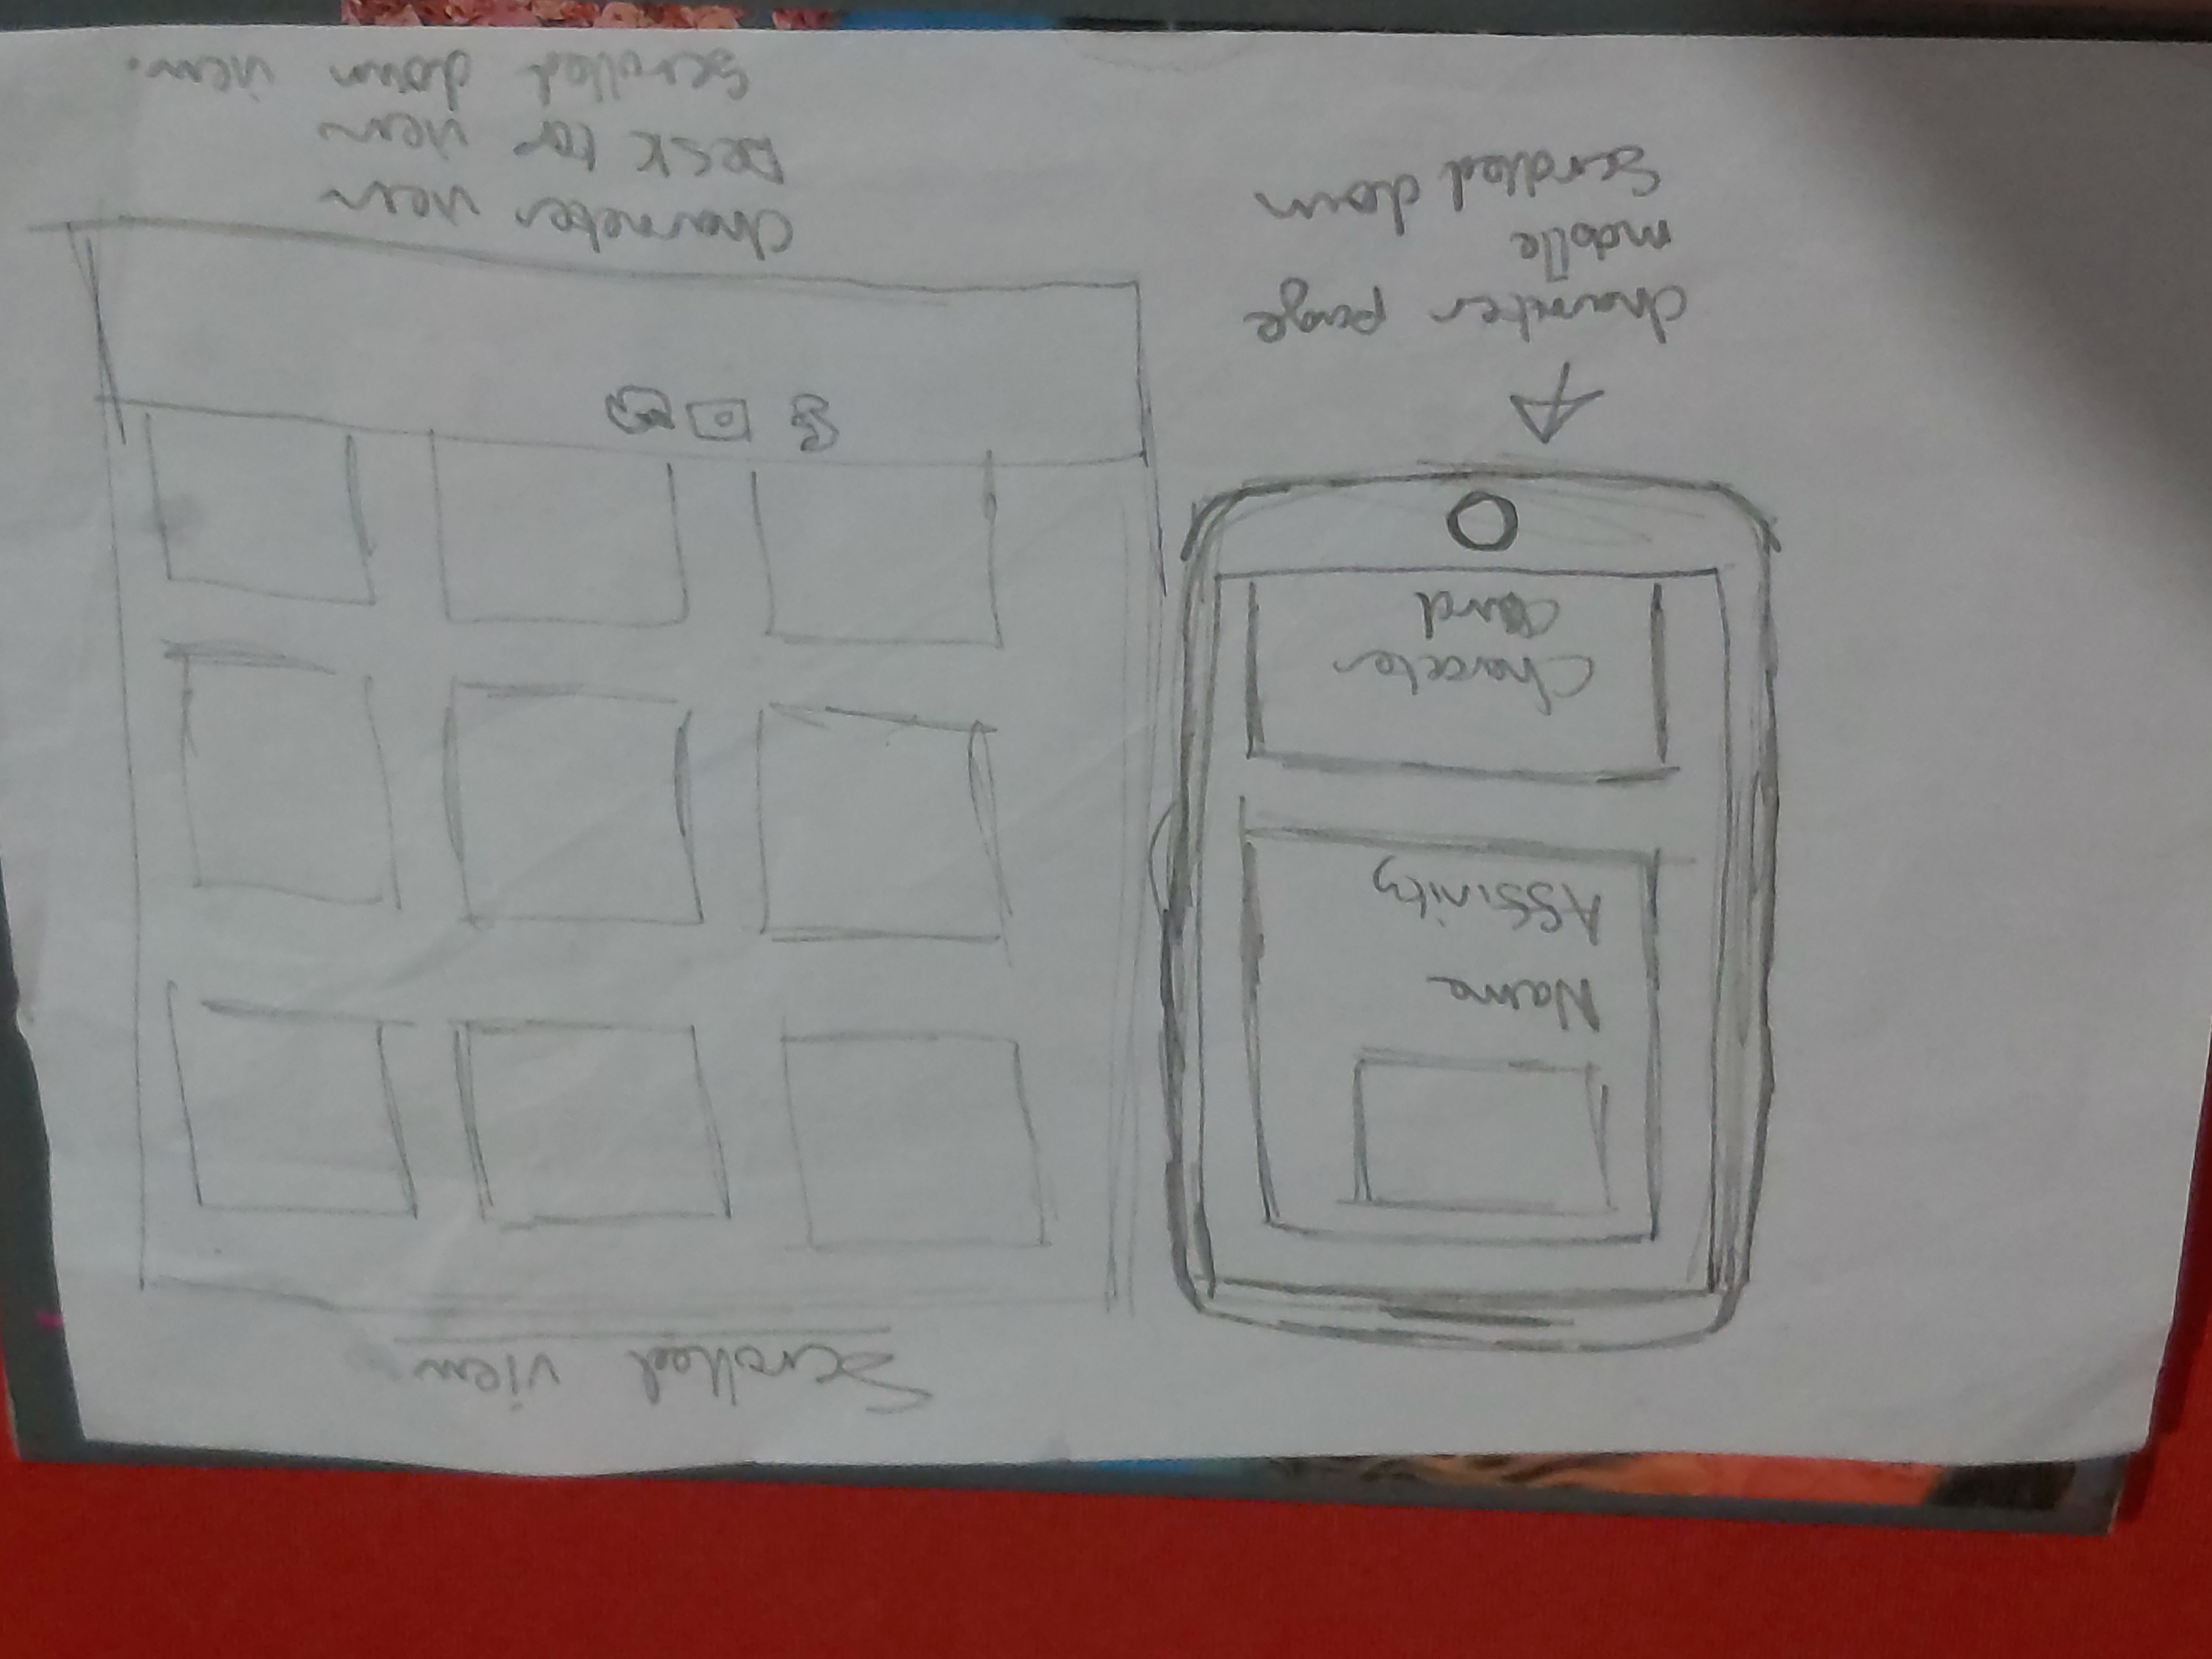 Scrolled view
Name
Assinity
Character
Card
character page
mobile
Scrolled down
Character view
Desk top view
Scrolled down view.